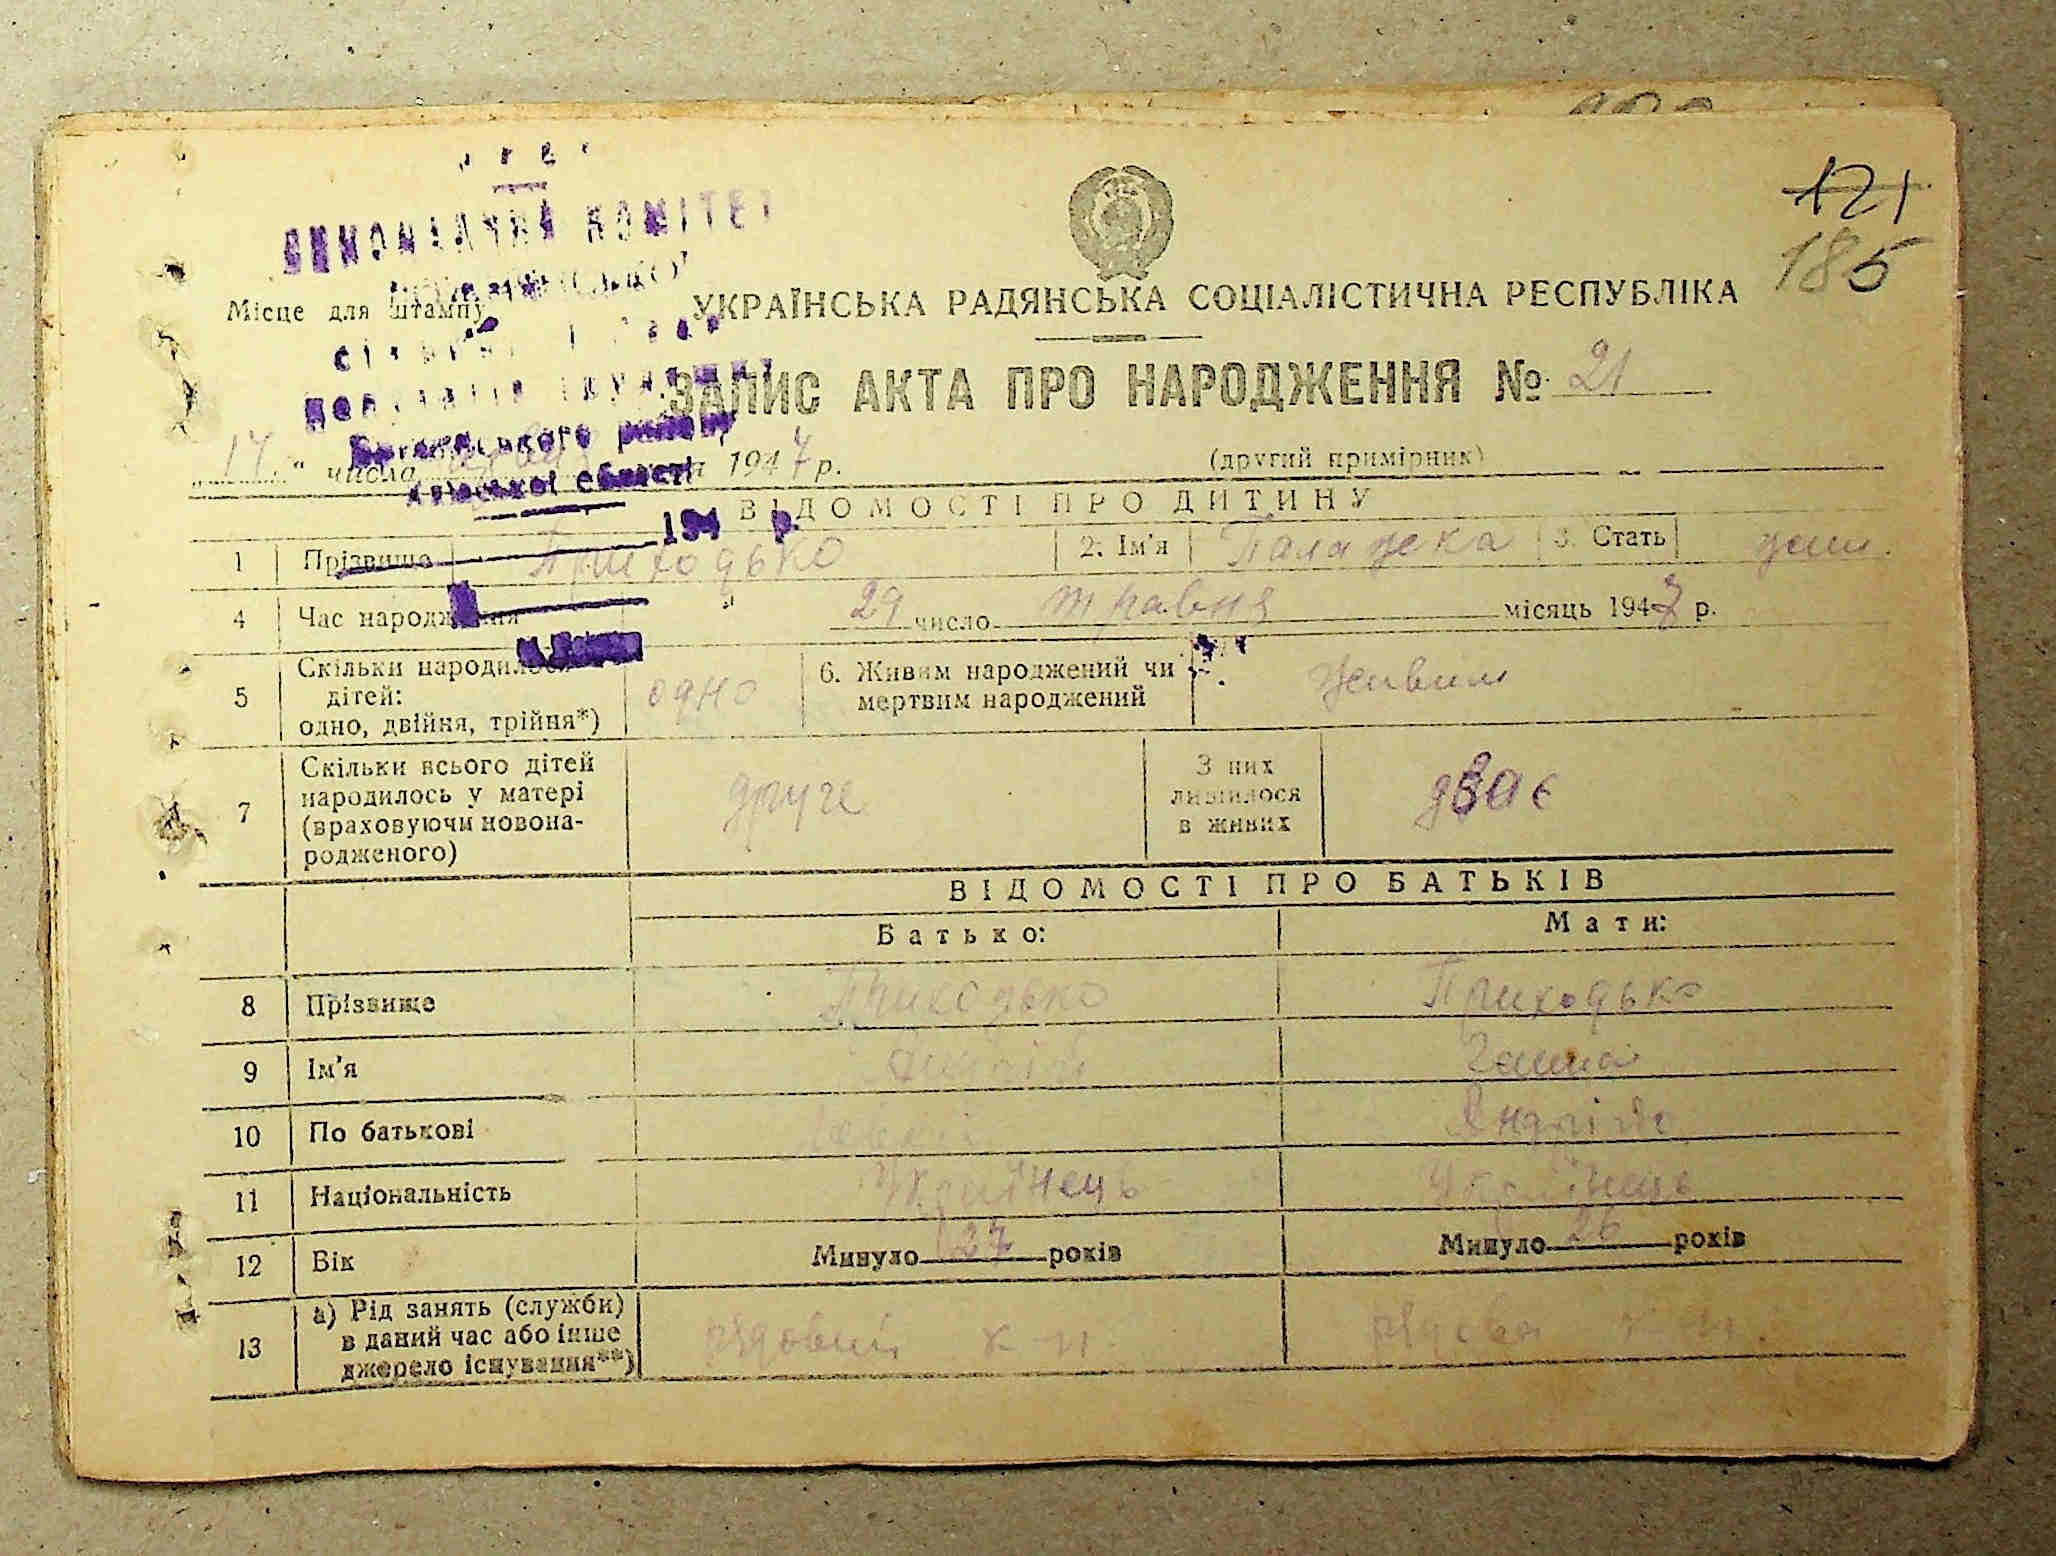 121
185
ВИКОНАВЧИЙ КОМІТЕТ
Місце для штампу
УКРАЇНСЬКА РАДЯНСЬКА СОЦІАЛІСТИЧНА РЕСПУБЛІКА
ЗАПИС АКТА ПРО НАРОДЖЕННЯ № 21
району
Київської області
17 " числа 1947 р.
(другий примірник)
194 р.
ВІДОМОСТІ ПРО ДИТИНУ
1 Прізвище Приходько 2. Ім'я Палажка 3. Стать жін.
4 Час народження 29 число травня місяць 1947 р.
5 Скільки народилося
дітей:
одно, двійня, трійня*)
одно
6. Живим народжений чи
мертвим народжений
Живим
7 Скільки всього дітей
народилось у матері
(враховуючи новона-
родженого)
друге
З них
лишилося
в живих
двоє
ВІДОМОСТІ ПРО БАТЬКІВ
Батько: Мати:
8 Прізвище Приходько Приходько
9 Ім'я Ганна
10 По батькові
11 Національність Українець Українець
12 Вік Минуло 27 років Минуло 26 років
13 а) Рід занять (служби)
в даний час або інше
джерело існування**)
рядовий к-п рядова к-п.